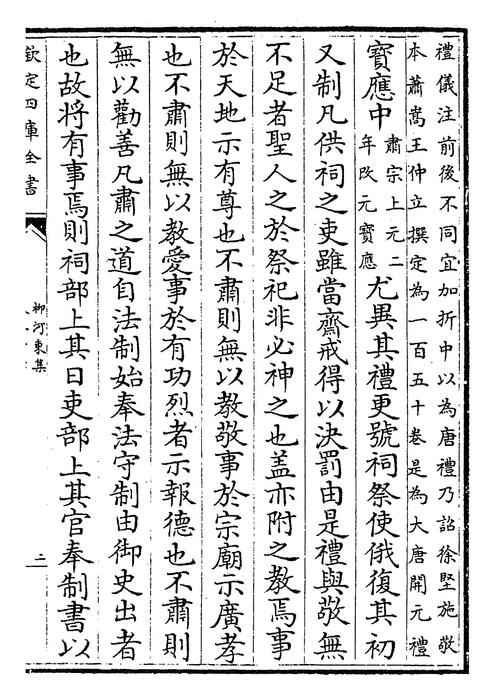 禮儀注前後不同宜加折中以為唐禮乃詔徐堅施敬
本蕭嵩王仲立撰定為一百五十卷是為大唐開元禮
寶應中肅宗上元二年改元寶應尤異其禮更號祠祭使俄復其初
又制凡供祠之吏雖當齋戒得以決罰由是禮與敬無
不足者聖人之於祭祀非必神之也盖亦附之教焉事
於天地示有尊也不肅則無以教敬事於宗廟示廣孝
也不肅則無以教愛事於有功烈者示報德也不肅則
無以勸善凡肅之道自法制始奉法守制由御史出者
也故將有事焉則祠部上其日吏部上其官奉制書以
欽定四庫全書
柳河東集
二